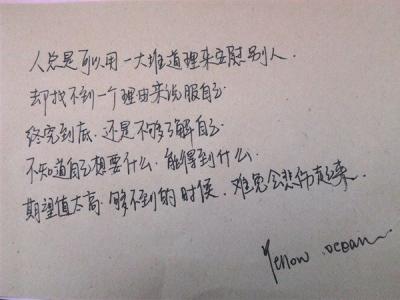 人总是可以用一大堆道理来安慰别人.
却找不到一个理由来说服自己.
终究到底.还是不够了解自己.
不知道自己想要什么.能得到什么.
期望值太高.够不到的时候.难免会悲伤起来.
Yellow ocean